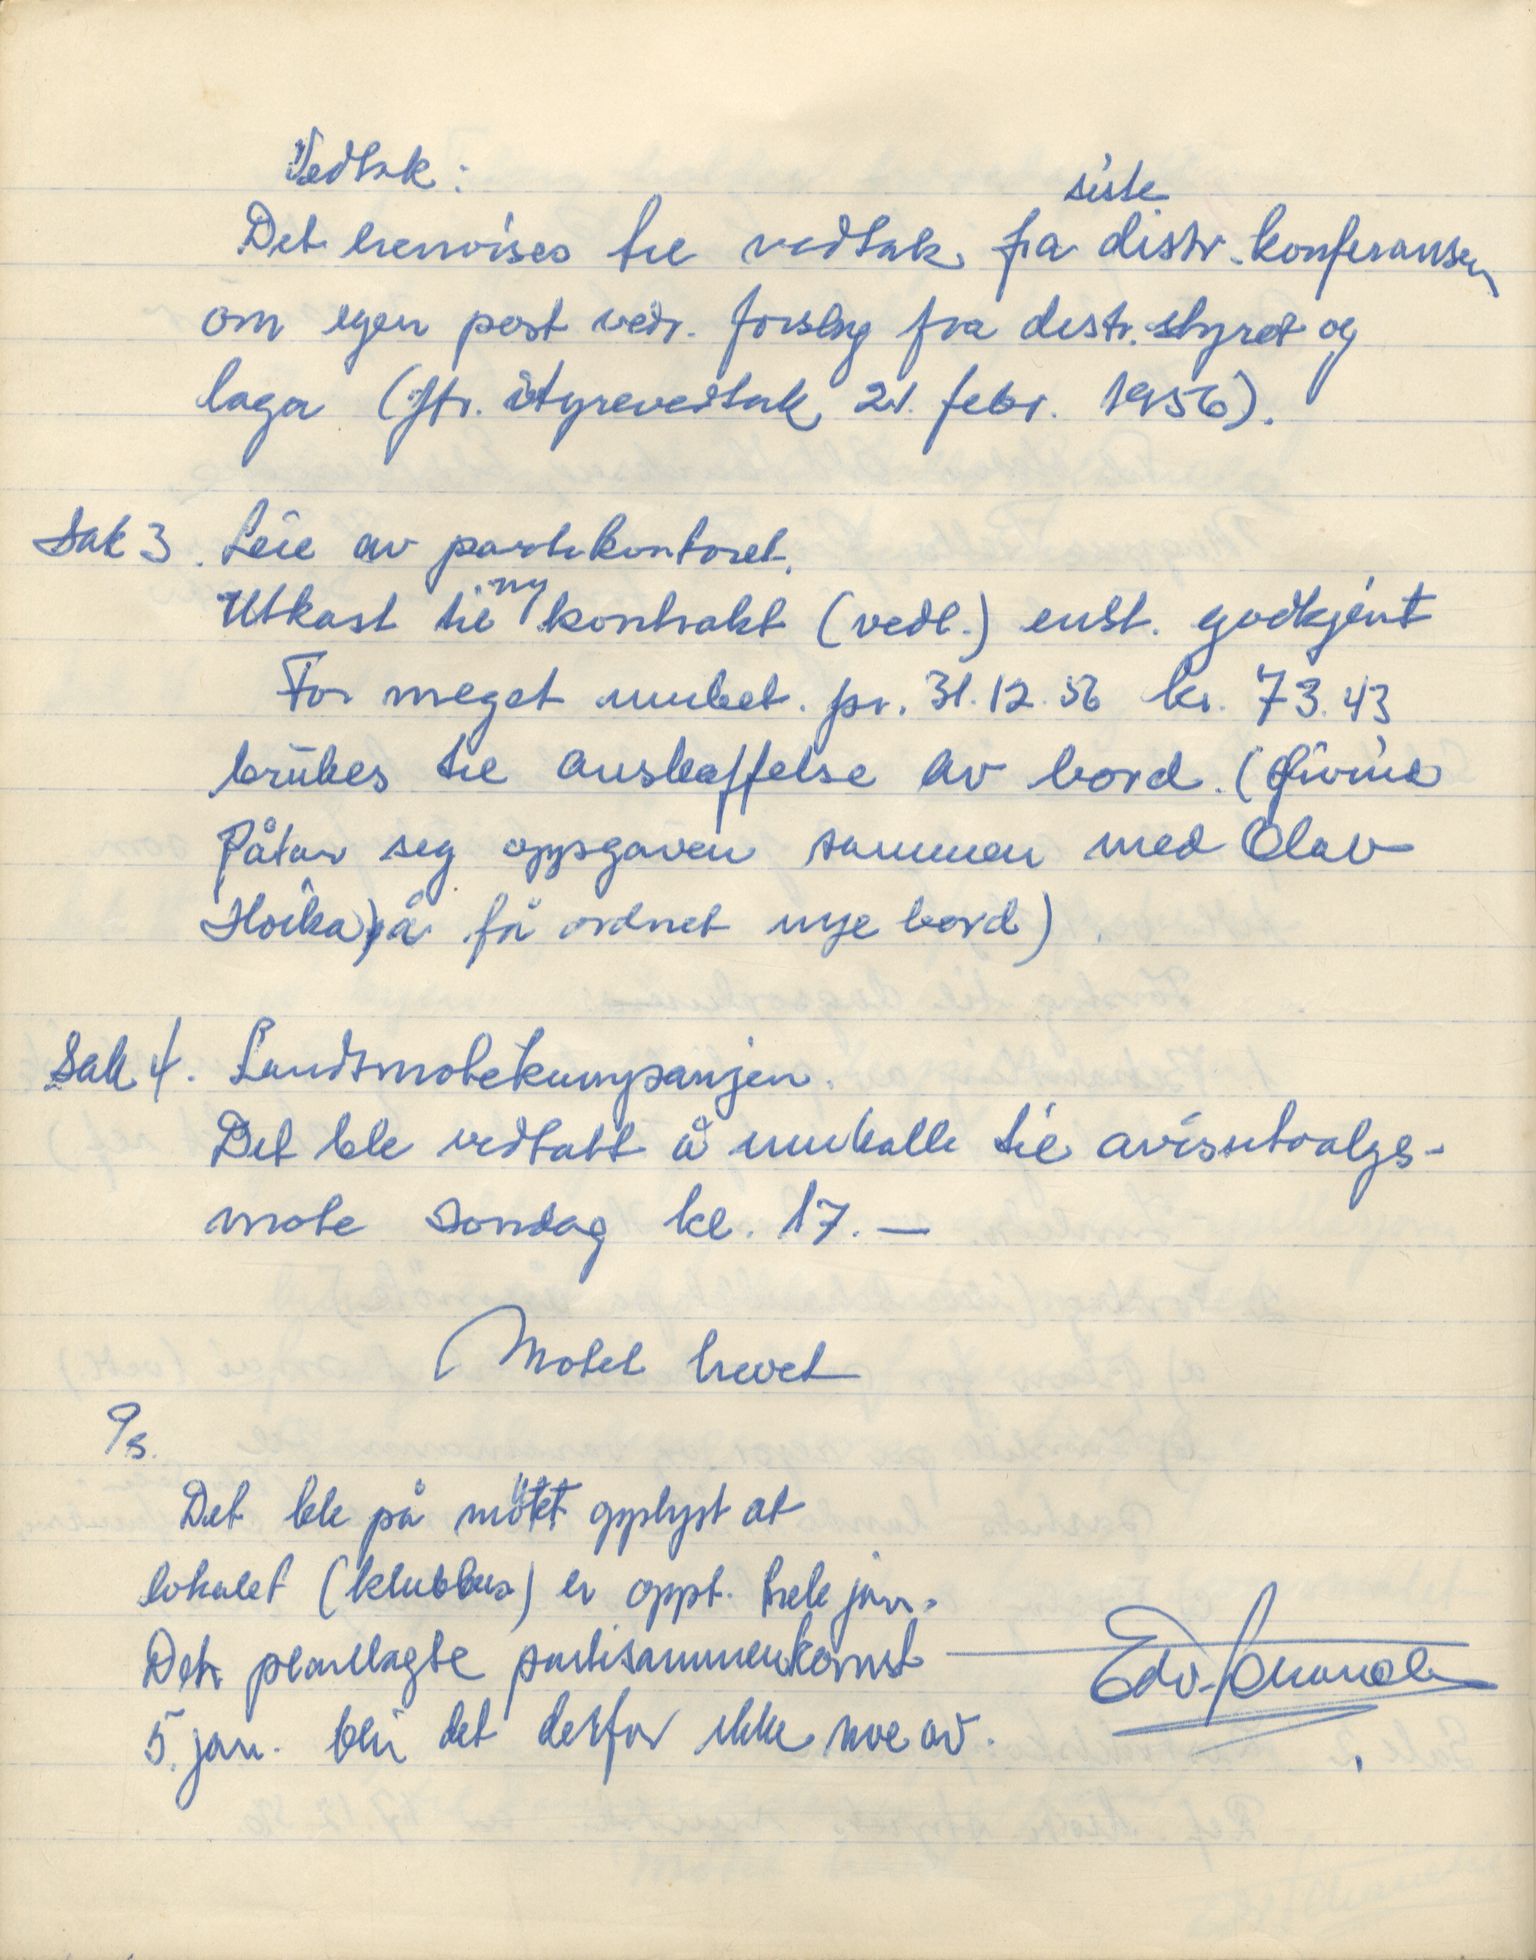 Vedtak:
Det henvises til vedtak fra siste distr.konferansen
om egen post vedr. forslag fra distr. styret og
laga (jfr. styrevedtak 21. febr. 1956).
Sak 3. Leie av partikontoret.
Utkast til ny kontrakt (vedl.) enst. godkjent
For meget innbet. pr. 31.12.56 kr. 73.43
brukes til anskaffelse av bord. (
påtar seg oppgaven sammen med Olav
Hoika) å få ordnet nye bord).
Sak 4. Landsmøtekampanjen.
Det ble vedtatt å innkalle til avisutvalgs-
møte søndag kl. 17.—
Møtet hevet
Ps.
Det ble på møtet opplyst at
lokalet (klubbhus) er oppt. hele jan.
Den planlagte partisammenkomst
5. jan. blir det derfor ikke noe av.
Edv.